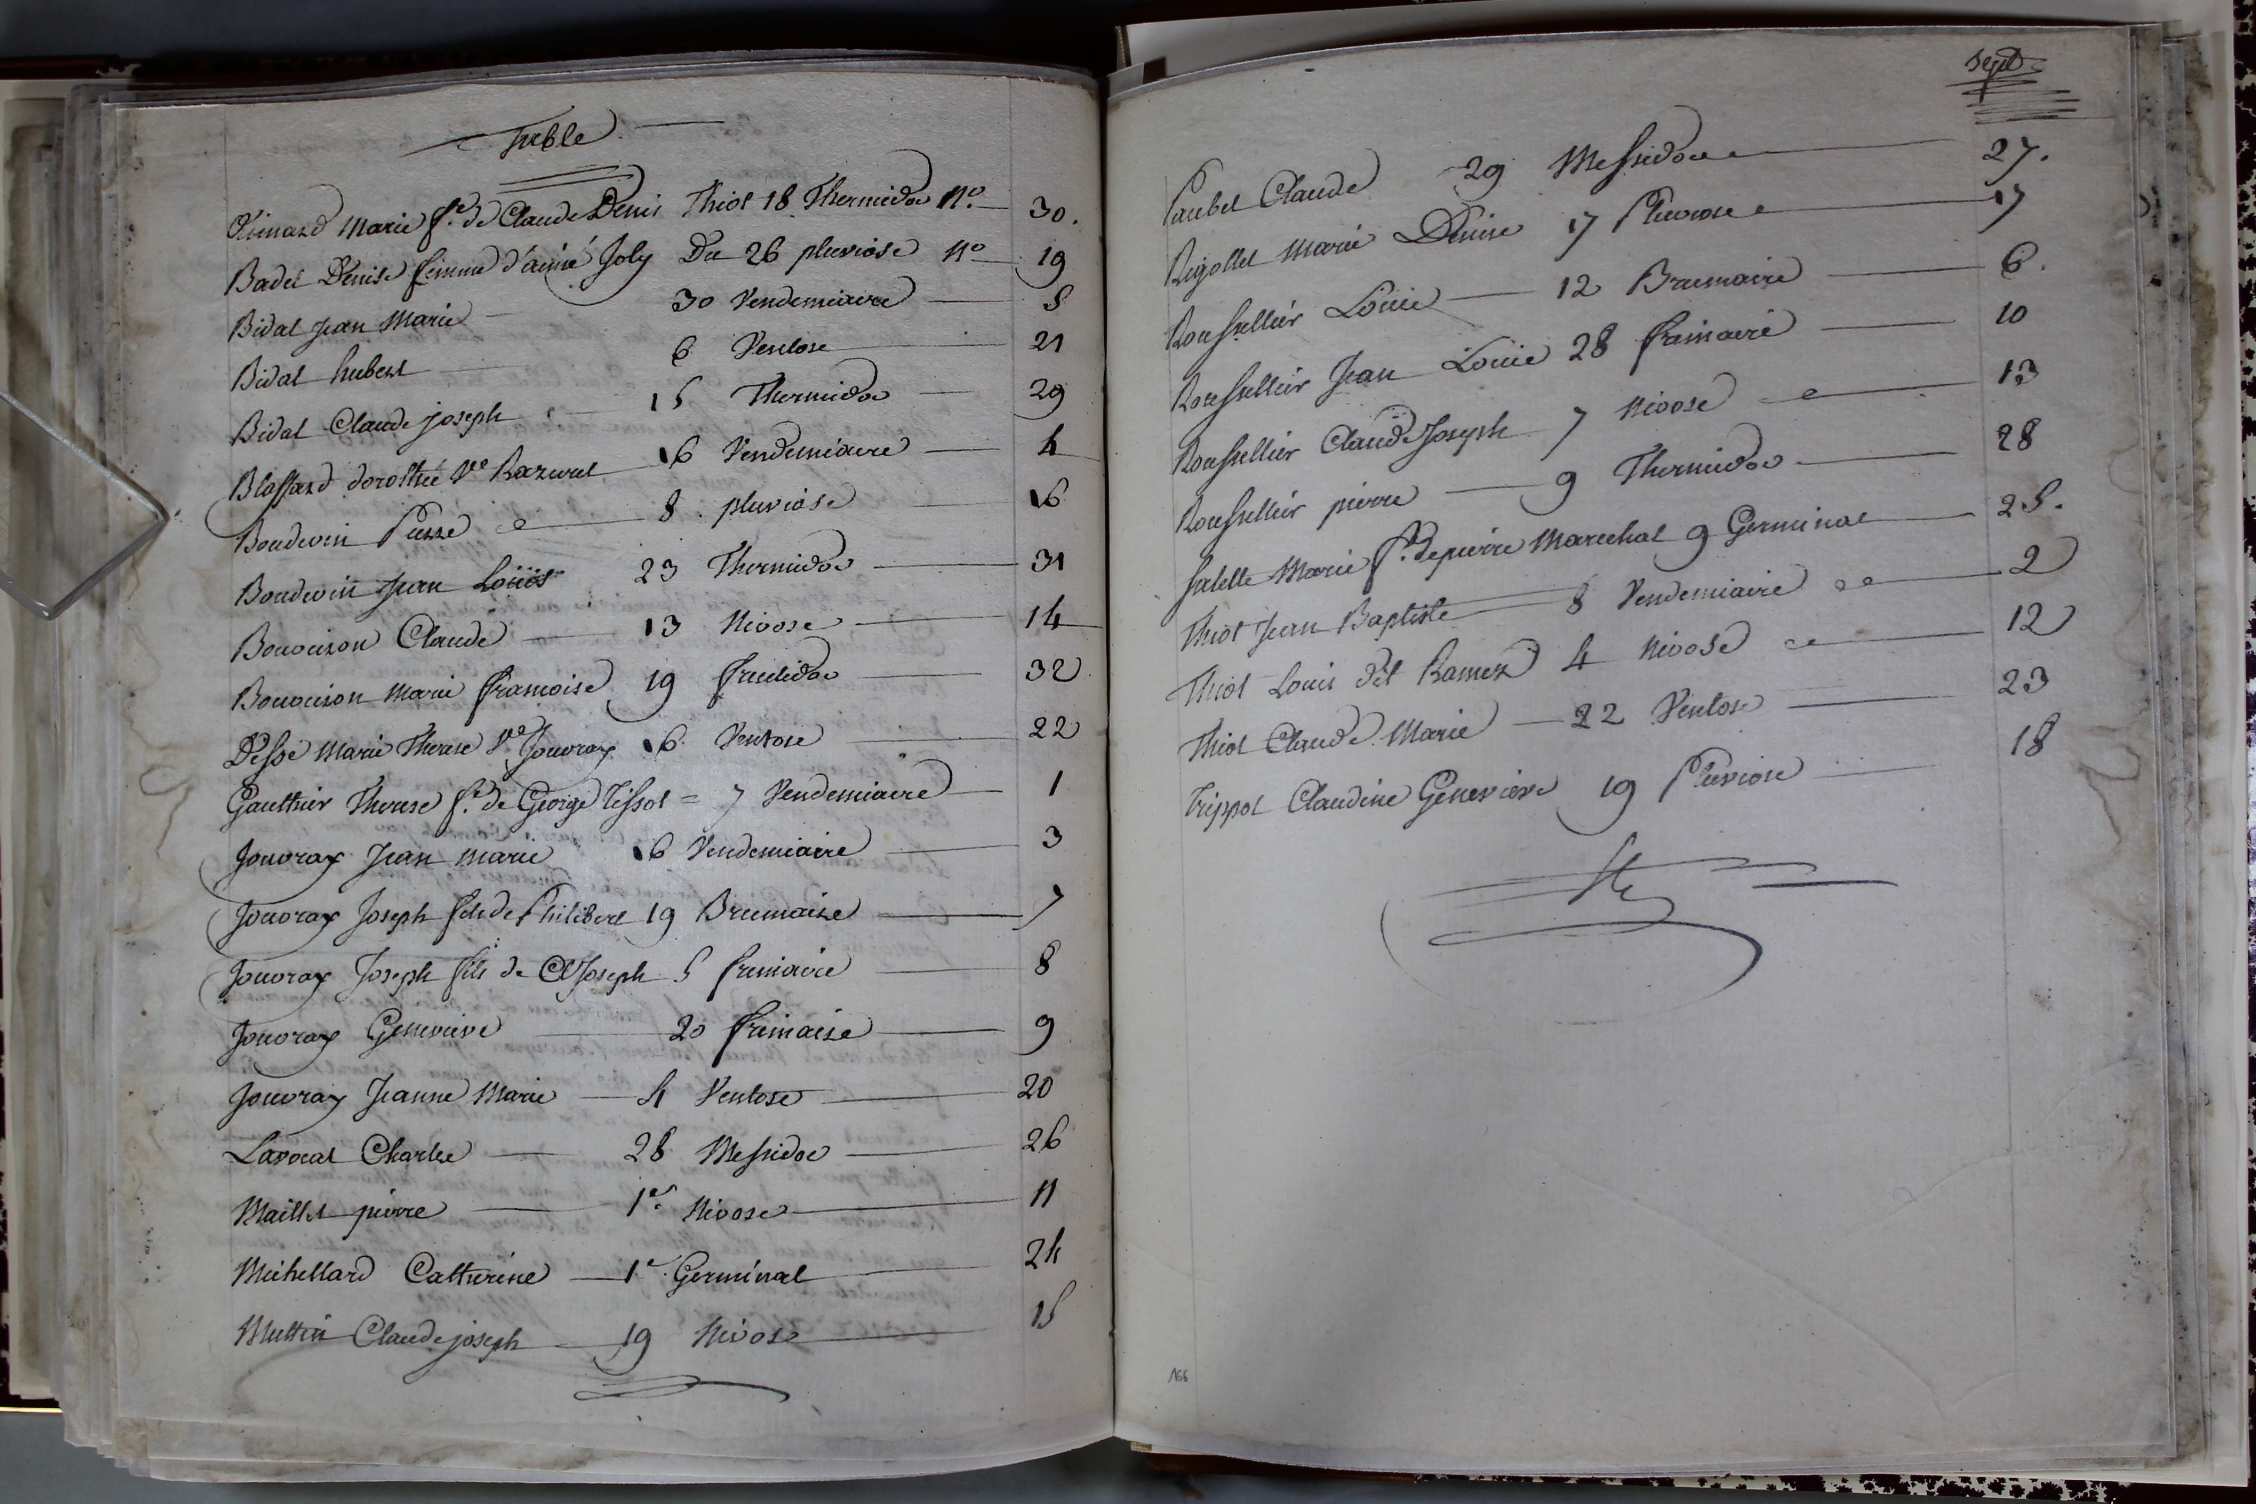 Table
Marie f.e de Claude Denis Thiot 18 Thermidor N.o 30.
Badet Denise femme d'aimé Joly Du 26 pluviose N.o 19
Bidat Jean Marie 30 Vendemiaire 5
Bidat hubert 6 Ventose 21
Bidat Claude joseph 15 Thermidor 29
Blassard dorothée V.e Razurel 16 Vendemiaire 4
Boudwin Pierre 8 pluviose 16
Boudwin Jean Loüis 23 Thermidor 31
Bouvison Claude 13 Nivose 14
Bouvison Marie francoise 19 fructidor 32
Desse Marie Therese V.e Jouvray 16 Ventose 22
Gauthier Therese f.e de George Tissot = 7 Vendemiaire 1
Jouvray Jean marie 16 Vendemiaire 3
Jouvray Joseph fils de Philibert 19 Brumaire 7
Jouvray Joseph fils de Cl Joseph 5 frimaire 8
Jouvray Genevieve 20 frimaire 9
Jouvray Jeanne Marie 4 Ventose 20
Lavocat Charles 28 Messidor 26
Maillet pierre 1.er Nivose 11
Michellard Catherine 1.er Germinal 24
Muttin Claude joseph 19 Nivose 15
sept
Paubel Claude 29 Messidor 27.
Rigollet Marie Denise 17 Pluviose 17
Rousselliér Louis 12 Brumaire 6.
Roussellier Jean Louis 28 frimaire 10
Roussellier Claude Joseph 7 Nivose 13
Rousselliér pierre 9 Thermidor 28
Salelle Marie f.e de pierre Marechal 9 Germinal 25.
Thiot Jean Baptiste 8 Vendemiaire 2
Thiot Louis dit Ramez 4 Nivose 12
Thiot Claude Marie 22 Ventose 23
Trippot Claudine Genevieve 19 Pluviose 18
166